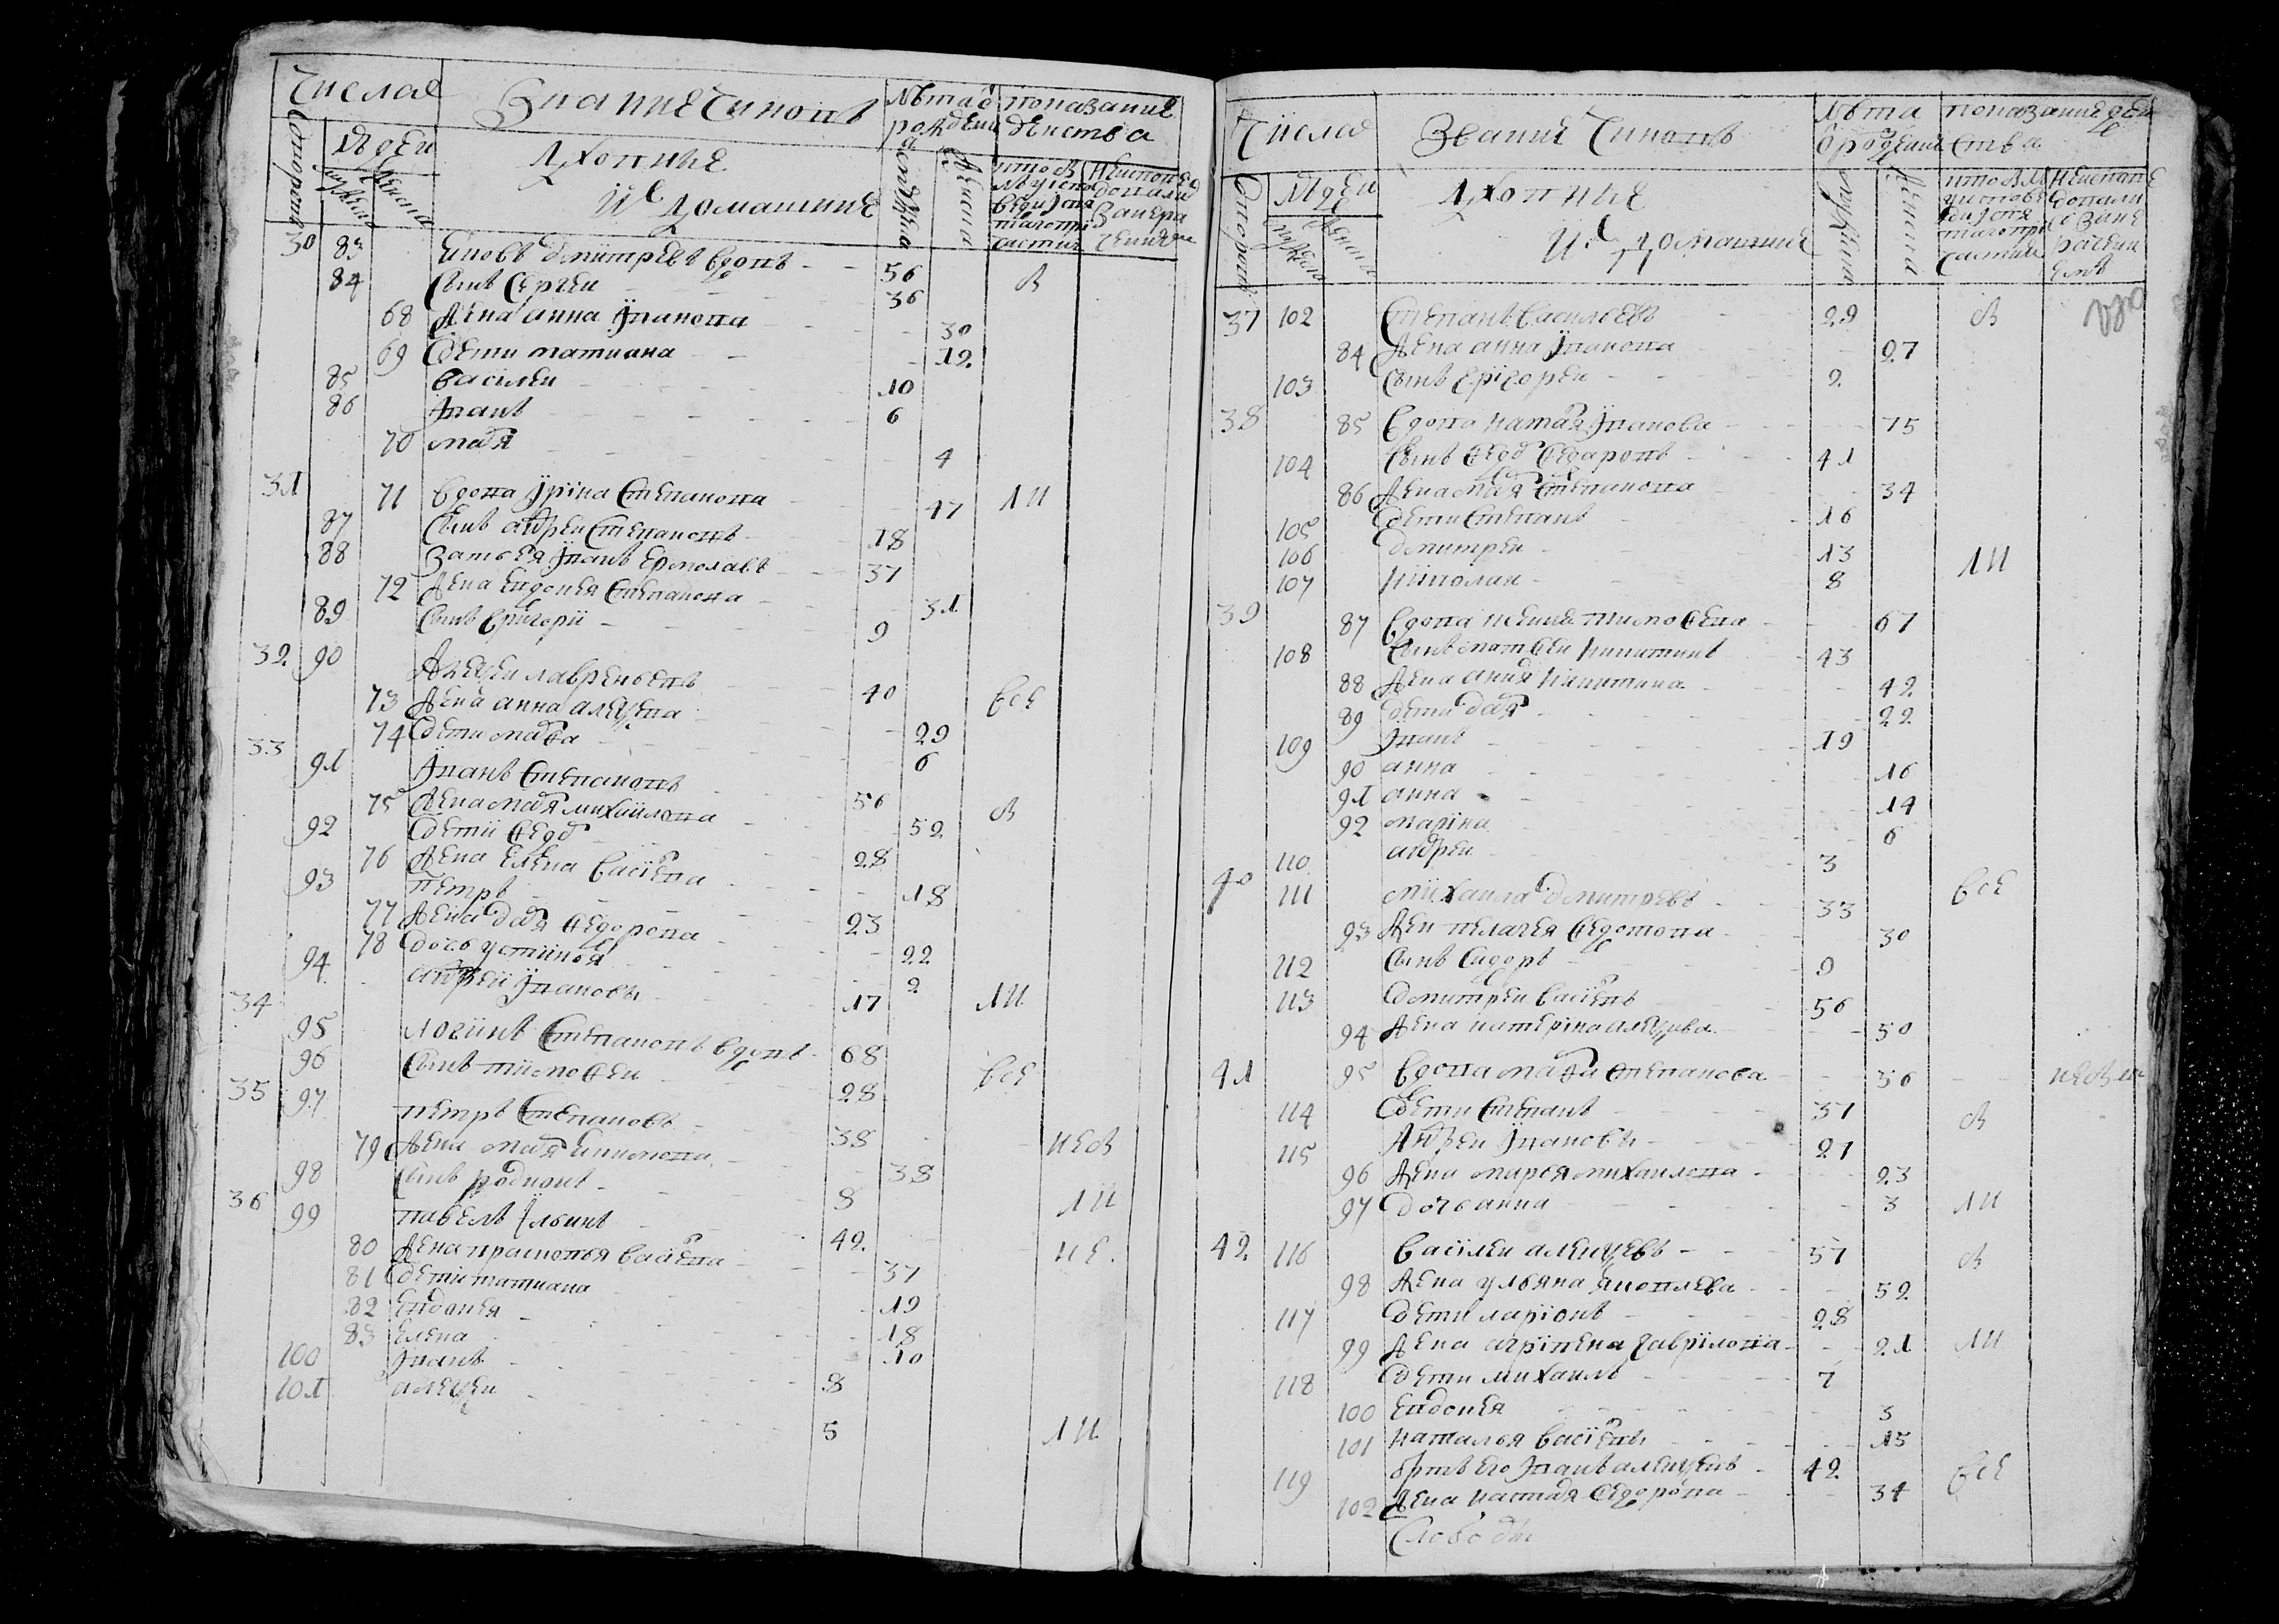 Числа
Звание чинов
Лета о рождения
показание действа
дворов
людей
мужеска
женска
Духовные
И их домашние
30 83 Иаковъ Дмитриевъ вдовъ 56 В
84 Сынъ Сергеи 36
68 Жена Анна Иванова 30
69 Дети Татиана 12
85 Василеи 10
86 Иванъ 6
70 Маря 4
31 71 Вдова Ирина Степанова 47 ЛИ
87 Сынъ Андреи Степановъ 18
88 Зать ея Иванъ Ермолаевъ 37
72 Жена Евдокея Степанова 31
89 Сынъ Григории 9
32 90 Алеѯеи Лаврентьевъ 40 ВСЕ
73 Жена Анна Алеѯеева 29
74 Дети Мавра 6
33 91 Иванъ Степановъ 56 В
75 Жена Маря Михаилова 52
92 Дети Ѳедоръ 28
76 Жена Елена Василева 18
93 Петръ 23
77 Жена Даря Ѳедорова 22
78 Дочь Устинья 2
94 Андреи Ивановъ 17 ЛИ
34 95 Логинъ Степановъ вдовъ 68
96 Сынъ Тимоѳеи 28 ВСЕ
35 97 Петръ Степановъ 38
79 Жена Маря 38 НЕВ
98 Сынъ Родионъ 8 ЛИ
36 99 Павелъ Ильинъ 42 НЕ
80 Жена Прасковья Василева 37
81 Дети Татиана 19
82 Евдокея 18
83 Елена 10
100 Иванъ 8
101 Алеѯеи 5 ЛИ
Числа
Звание чиновъ
Лета о рождения
показание действа
дворов
людей
мужеска
женска
Духовные
И их домашние
37 102 Степанъ Василевъ 29 В
84 Жена Анна Иванова 27
103 Сынъ Григореи 2
38 85 Вдова Наталя Иванова 75
104 Сынъ Ѳедоръ Ѳедоровъ 41
86 Жена Маря Степанова 34
105 Дети Степанъ 16
106 Дмитреи 13 ЛИ
107 Николаи 8
39 87 Вдова Тимоѳеева 67
108 Сынъ Матвеи Никитинъ 43
88 Жена Никитина 42
89 Дети Даря 22
109 Иванъ 19
90 Анна 16
91 Анна 14
92 Марина 6
110 Андреи 3
40 111 Михаила Дмитревъ 33 ВСЕ
93 Жена Пелагея Ѳедотова 30
112 Сынъ Сидоръ 9
113 Дмитреи Василевъ 56
94 Жена Катерина Алеѯеева 50
41 95 Вдова Маря Степанова 56
114 Дети Степанъ 37 В
115 Андреи Ивановъ 21
96 Жена Марья Михаилова 23
97 Дочь Анна 3 ЛИ
42 116 Василеи Алеѯеевъ 57 В
98 Жена Ульяна Яковлева 52
117 Дети Ларионъ 28
99 Жена Агрипена Гаврилова 21 ЛИ
118 Дети Михаилъ 7
100 Евдокея 3
101 Наталья Василевъ 15
119 братъ его Иванъ Алеѯеевъ 42 ВСЕ
102 Жена Настася Ѳедорова 34
Слободы